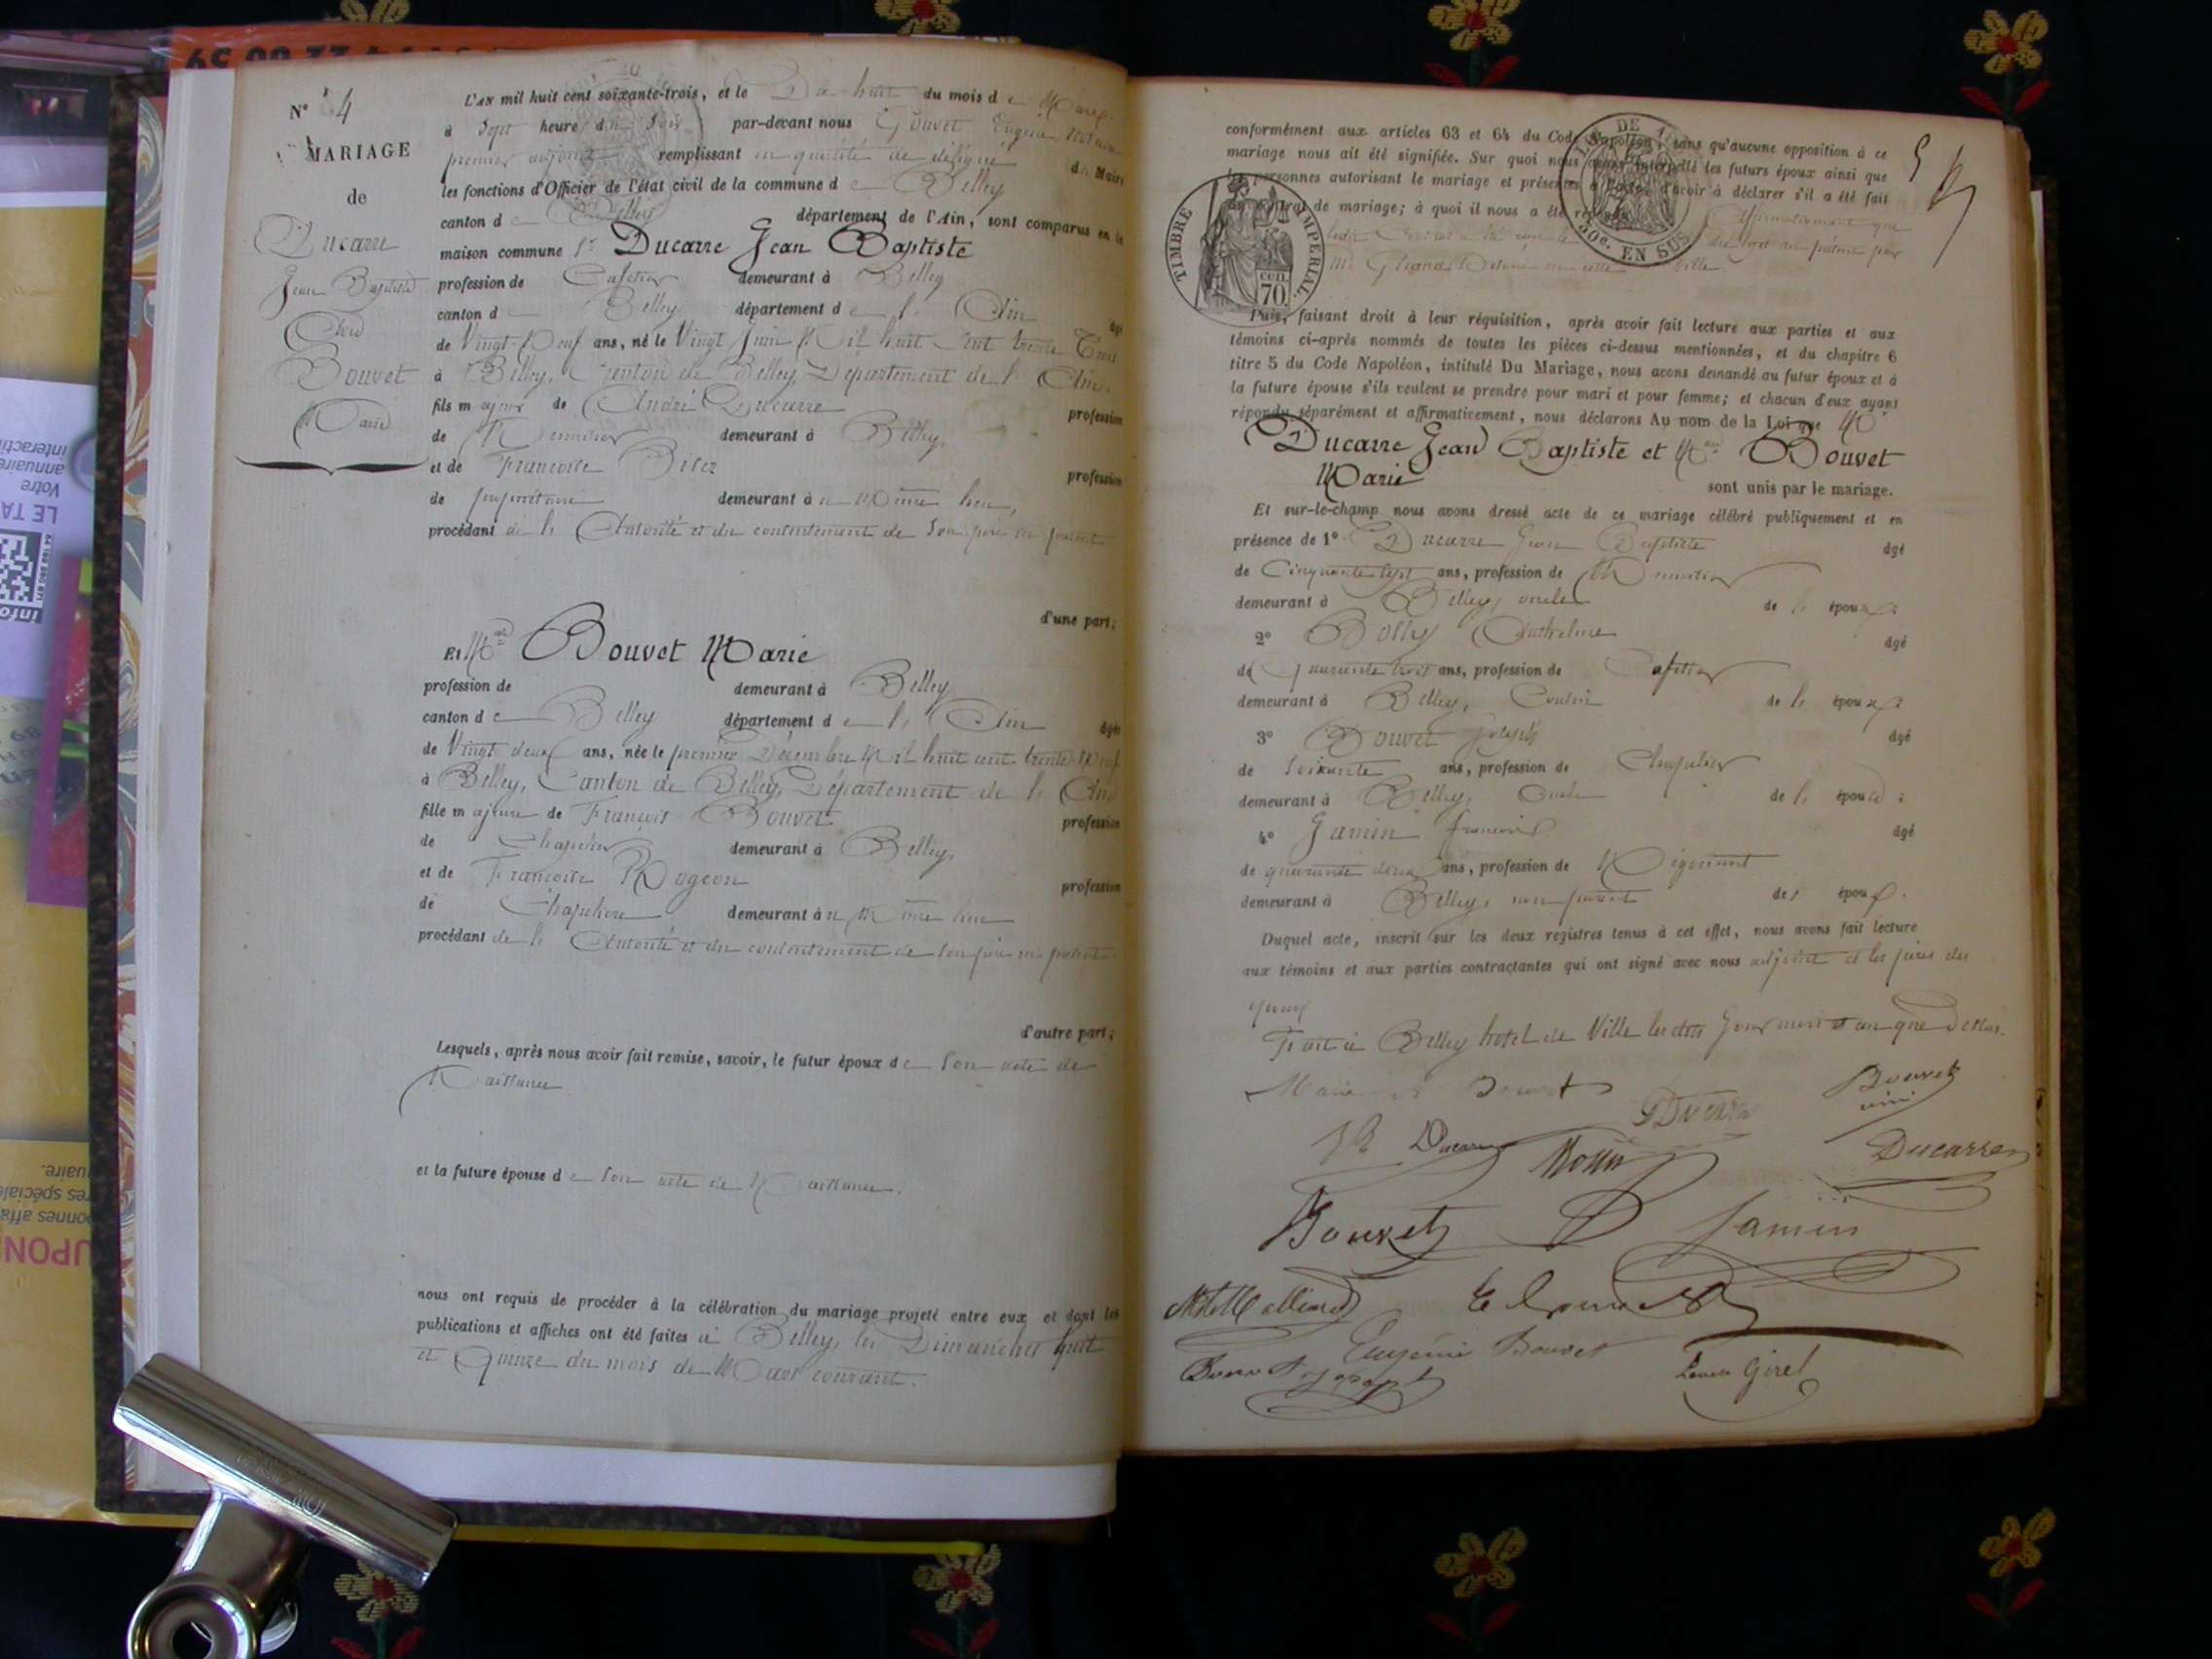 N° 4
MARIAGE
de
Ducarre
Jean Baptiste
Avec
Bouvet
Marie
L'AN mil huit cent soixante-trois, et le Dix huit du mois de Mars
à Sept heures du Soir par-devant nous Eugène Notaire
premier adjoint remplissant en qualité de délégué du Maire
les fonctions d'Officier de l'état civil de la commune de Belley
canton de Belley département de l'Ain, sont comparus en la
maison commune Sr Ducarre Jean Baptiste
profession de Cafetier demeurant à Belley
canton de Belley département de l'Ain âgé
de Vingt Neuf ans, né le Vingt Juin Mil huit Cent trente Trois
à Belley, Canton de Belley, Département de l'Ain.
fils majeur de André Ducarre profession
de Menuisier demeurant à Belley,
et de Françoise profession
de propriétaire demeurant au Même lieu,
procédant de l'Autorité et du consentement de Son père ici présent
d'une part;
Et Melle Bouvet Marie
profession de demeurant à Belley
canton de Belley département de l'Ain âgée
de Vingt deux ans, née le premier Décembre Mil huit cent trente Neuf
à Belley, Canton de Belley, Département de l'Ain
fille majeure de François Bouvet profession
de Chapelier demeurant à Belley,
et de Françoise Mogeon profession
de Chapelière demeurant au Même lieu
procédant de l'Autorité et du consentement de Son père ici présent
d'autre part;
Lesquels, après nous avoir fait remise, savoir, le futur époux de Son acte de
Naissance
et la future épouse de Son acte de Naissance.
nous ont requis de procéder à la célébration du mariage projeté entre eux et dont les
publications et affiches ont été faites à Belley, les Dimanches huit
et Quinze du mois de Mars courant.
conformément aux articles 63 et 64 du Code Napoléon, sans qu'aucune opposition à ce
mariage nous ait été signifiée. Sur quoi nous avons interpellé les futurs époux ainsi que
les personnes autorisant le mariage et présentes d'avoir à déclarer s'il a été fait
un contrat de mariage; à quoi il nous a été répondu Affirmativement que
ledit Contrat a été reçu le du présent par
Me Notaire en cette Ville.
TIMBRE IMPERIAL
cen 70
50c. EN SUS
Puis, faisant droit à leur réquisition, après avoir fait lecture aux parties et aux
témoins ci-après nommés de toutes les pièces ci-dessus mentionnées, et du chapitre 6
titre 5 du Code Napoléon, intitulé Du Mariage, nous avons demandé au futur époux et à
la future épouse s'ils veulent se prendre pour mari et pour femme; et chacun d'eux ayant
répondu séparément et affirmativement, nous déclarons Au nom de la Loi que Mr
Ducarre Jean Baptiste et Melle Bouvet
Marie
sont unis par le mariage.
Et sur-le-champ nous avons dressé acte de ce mariage célébré publiquement et en
présence de 1° Ducarre Jean Baptiste âgé
de Cinquante Sept ans, profession de Menuisier
demeurant à Belley, oncle de l'époux;
2° Bolly Anthelme âgé
de Quarante trois ans, profession de Cafetier
demeurant à Belley, Cousin de l'époux;
3° Bouvet Joseph âgé
de Soixante ans, profession de Chapelier
demeurant à Belley, Oncle de l'épouse;
4° Jamin François âgé
de quarante deux ans, profession de Négociant
demeurant à Belley, non parent des époux.
Duquel acte, inscrit sur les deux registres tenus à cet effet, nous avons fait lecture
aux témoins et aux parties contractantes qui ont signé avec nous adjoint et les pères des
époux
Fait à Belley hotel de Ville lesdits Jour mois et an que Dessus.
Marie Bouvet
Bouvet
Ducarre
Ducarre
Bouvet
Jamin
Eugénie Bouvet
Bouvet Joseph
Louise Girel